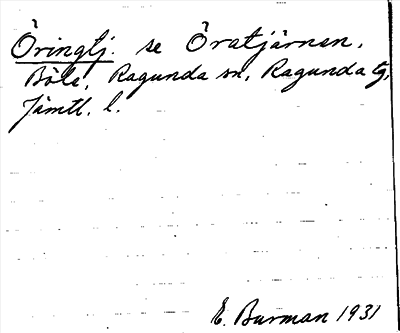 Öringtj. se Öratjärnen,
Böle, Ragunda sn, Ragunda tg,
Jämtl. l.
E. Burman 1931